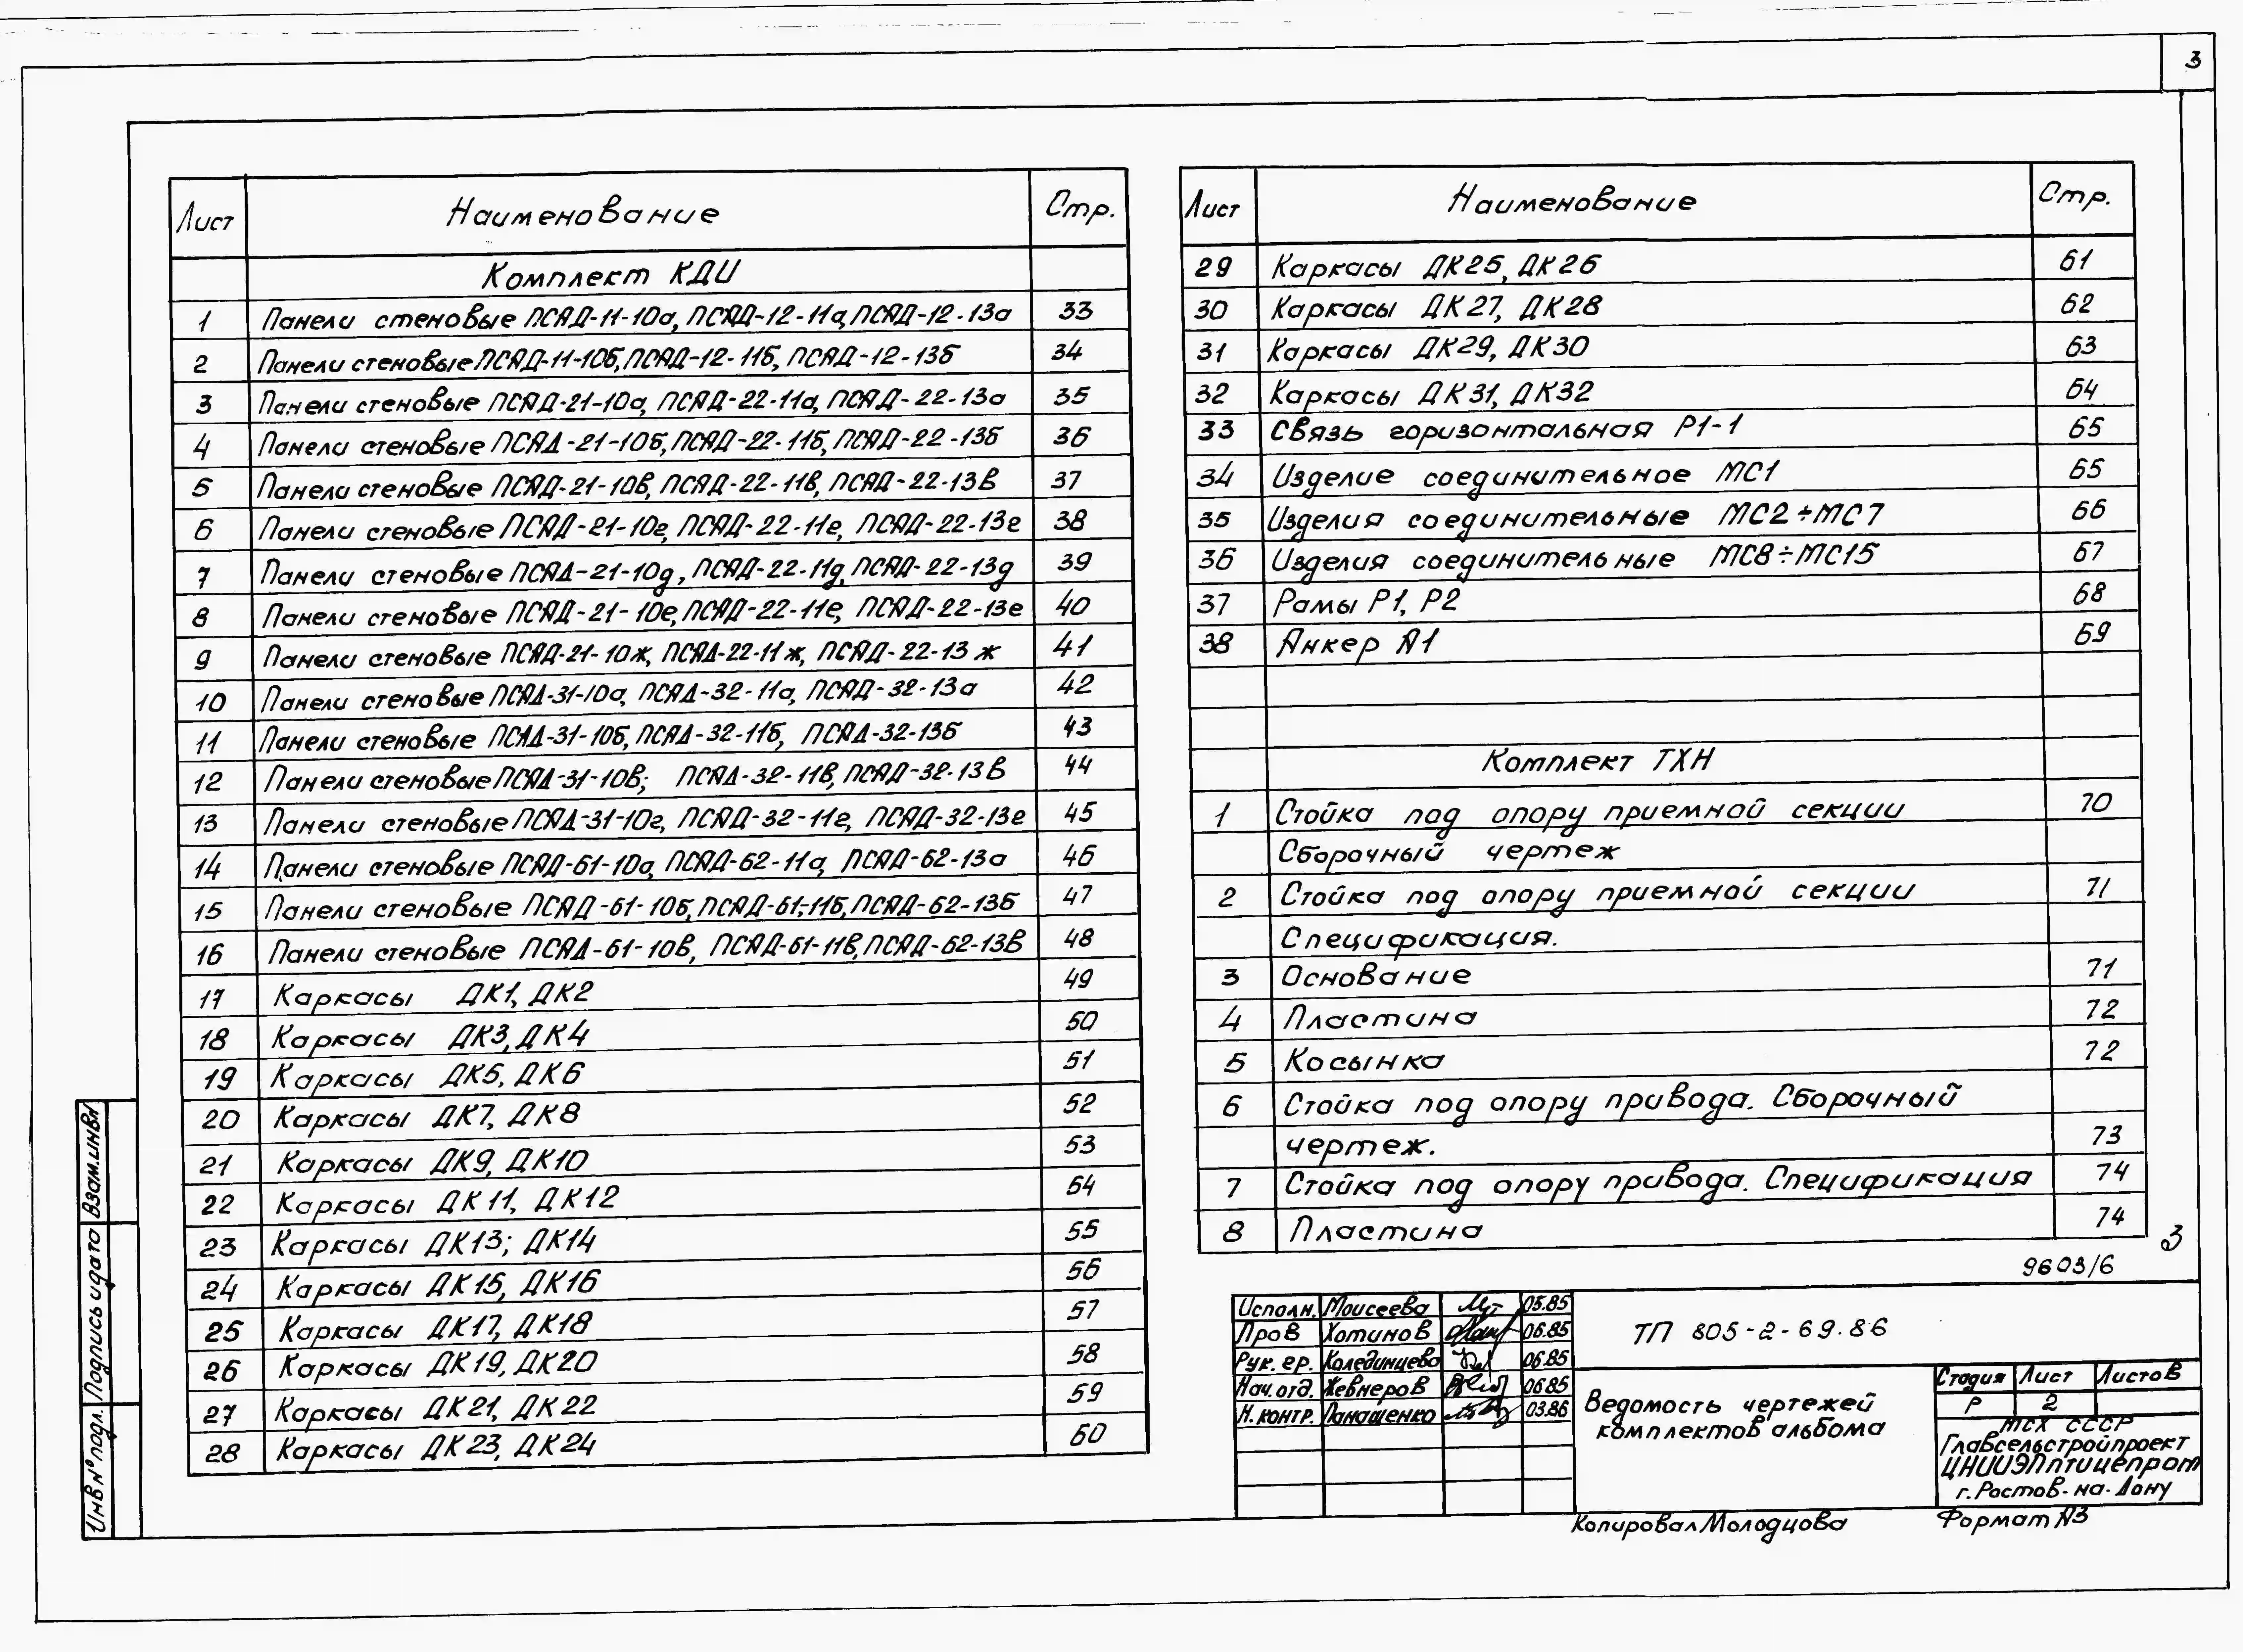 3
Лист Наименование Стр.
Комплект КДИ
1 Панели стеновые ПСЯД-11-10а, ПСЯД-12-11а, ПСЯД-12-13а 33
2 Панели стеновые ПСЯД-11-10б, ПСЯД-12-11б, ПСЯД-12-13б 34
3 Панели стеновые ПСЯД-21-10а, ПСЯД-22-11а, ПСЯД-22-13а 35
4 Панели стеновые ПСЯД-21-10б, ПСЯД-22-11б, ПСЯД-22-13б 36
5 Панели стеновые ПСЯД-21-10в, ПСЯД-22-11в, ПСЯД-22-13в 37
6 Панели стеновые ПСЯД-21-10г, ПСЯД-22-11г, ПСЯД-22-13г 38
7 Панели стеновые ПСЯД-21-10д, ПСЯД-22-11д, ПСЯД-22-13д 39
8 Панели стеновые ПСЯД-21-10е, ПСЯД-22-11е, ПСЯД-22-13е 40
9 Панели стеновые ПСЯД-21-10ж, ПСЯД-22-11ж, ПСЯД-22-13ж 41
10 Панели стеновые ПСЯД-31-10а, ПСЯД-32-11а, ПСЯД-32-13а 42
11 Панели стеновые ПСЯД-31-10б, ПСЯД-32-11б, ПСЯД-32-13б 43
12 Панели стеновые ПСЯД-31-10в; ПСЯД-32-11в, ПСЯД-32-13в 44
13 Панели стеновые ПСЯД-31-10г, ПСЯД-32-11г, ПСЯД-32-13г 45
14 Панели стеновые ПСЯД-61-10а, ПСЯД-62-11а, ПСЯД-62-13а 46
15 Панели стеновые ПСЯД-61-10б, ПСЯД-61-11б, ПСЯД-62-13б 47
16 Панели стеновые ПСЯД-61-10в, ПСЯД-61-11в, ПСЯД-62-13в 48
17 Каркасы ДК1, ДК2 49
18 Каркасы ДК3, ДК4 50
19 Каркасы ДК5, ДК6 51
20 Каркасы ДК7, ДК8 52
21 Каркасы ДК9, ДК10 53
22 Каркасы ДК11, ДК12 54
23 Каркасы ДК13; ДК14 55
24 Каркасы ДК15, ДК16 56
25 Каркасы ДК17, ДК18 57
26 Каркасы ДК19, ДК20 58
27 Каркасы ДК21, ДК22 59
28 Каркасы ДК23, ДК24 60
Лист Наименование Стр.
29 Каркасы ДК25, ДК26 61
30 Каркасы ДК27, ДК28 62
31 Каркасы ДК29, ДК30 63
32 Каркасы ДК31, ДК32 64
33 Связь горизонтальная Р1-1 65
34 Изделие соединительное МС1 65
35 Изделия соединительные МС2÷МС7 66
36 Изделия соединительные МС8÷МС15 67
37 Рамы Р1, Р2 68
38 Анкер А1 69
Комплект ТХН
1 Стойка под опору приемной секции 70
Сборочный чертеж
2 Стойка под опору приемной секции 71
Спецификация.
3 Основание 71
4 Пластина 72
5 Косынка 72
6 Стойка под опору привода. Сборочный
чертеж. 73
7 Стойка под опору привода. Спецификация 74
8 Пластина 74
3
9603/6
Исполн. Моисеева 05.85
Пров Хотинов 06.85
Рук. гр. Колединцева 06.85
Нач. отд. Жевнеров 06.85
Н. контр. Панашенко 03.86
ТП 805-2-69.86
Ведомость чертежей
комплектов альбома
Стадия Лист Листов
Р 2
МСХ СССР
Главсельстройпроект
ЦНИИЭПптицепром
г. Ростов-на-Дону
Копировал Молодцова Формат А3
Взам. инв№
Подпись и дата
Инв № подл.